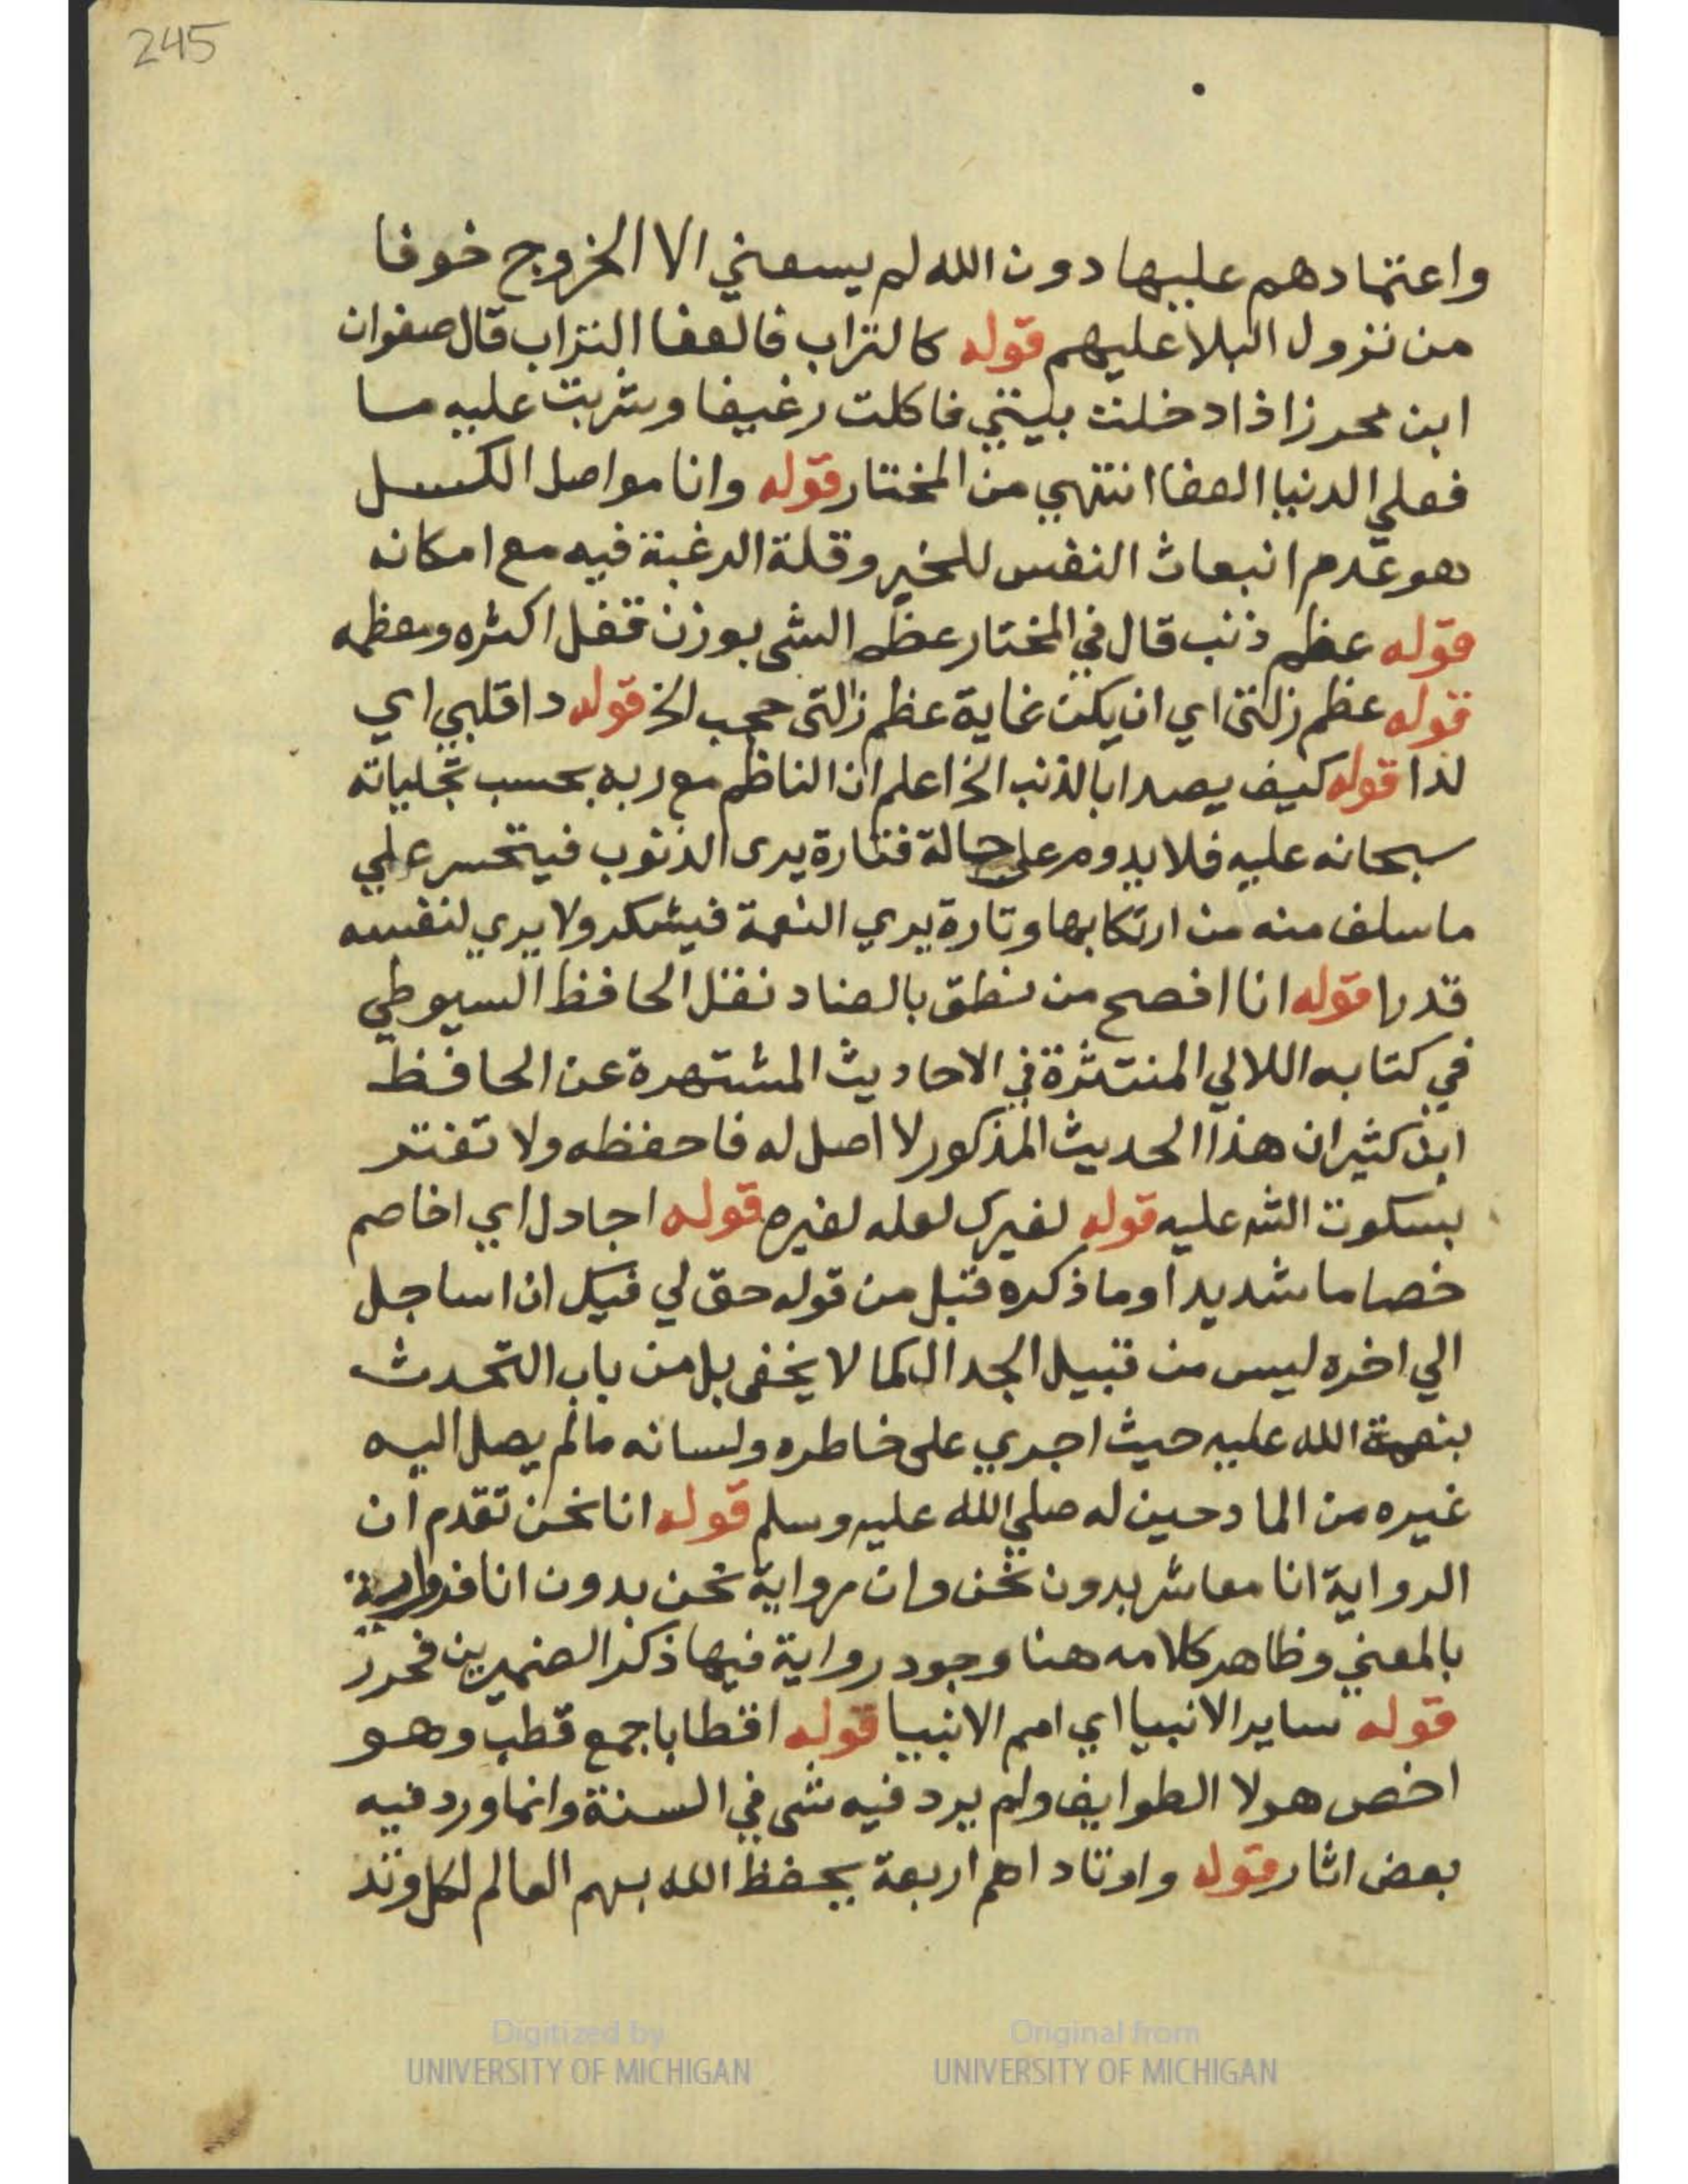 245
واعتمادهم عليها دون الله لم يسعني الا الخروج خوفا
من نزول البلا عليهم قوله كالتراب فالعفا التراب قال صفوان
ابن محرز اذا دخلت بيتي فاكلت رغيفا وشربت عليه ما
فعلي الدنيا العفا انتهي من المختار قوله وانا مواصل الكسل
هو عدم انبعاث النفس للخير وقلة الرغبة فيه مع امكانه
قوله عظم ذنب قال في المختار عظم الشي بوزن قفل اكثره ومعظمه
قوله عظم زلتي اي ان يكن غاية عظم زلتي حجب الخ قوله دا قلبي اي
لذا قوله كيف يصدا بالذنب الخ اعلم ان الناظم مع ربه بحسب تجلياته
سبحانه عليه فلا يدوم على حالة فتارة يرى الذنوب فيتحسر علي
ما سلف منه من ارتكابها وتارة يري النعمة فيشكر ولا يري لنفسه
قدرا قوله انا افصح من نطق بالضاد نقل الحافظ السيوطي
في كتابه اللالي المنتثرة في الاحاديث المشتهرة عن الحافظ
ابن كثير ان هذا الحديث المذكور لا اصل له فاحفظه ولا تغتر
بسكوت الشه عليه قوله لغيرك لعله لغيره قوله اجادل اي اخاصم
خصاما شديدا وما ذكره قبل من قوله حق لي فيك ان اساجل
الي اخره ليس من قبيل الجدال كما لا يخفى بل من باب التحدث
بنعمة الله عليه حيث اجري على خاطره ولسانه مالم يصل اليه
غيره من المادحين له صلي الله عليه وسلم قوله انا نحن تقدم ان
الرواية انا معاشر بدون نحن وان رواية نحن بدون انا فرواية
بالمعني وظاهر كلامه هنا وجود رواية فيها ذكر الضميرين فحرر
قوله ساير الانبيا اي امم الانبيا قوله اقطابا جمع قطب وهو
اخص هولا الطوايف ولم يرد فيه شى في السنة وانما ورد فيه
بعض اثار قوله واوتادا هم اربعة يحفظ الله بهم العالم لكل وتد
Digitized by
UNIVERSITY OF MICHIGAN
Original from
UNIVERSITY OF MICHIGAN